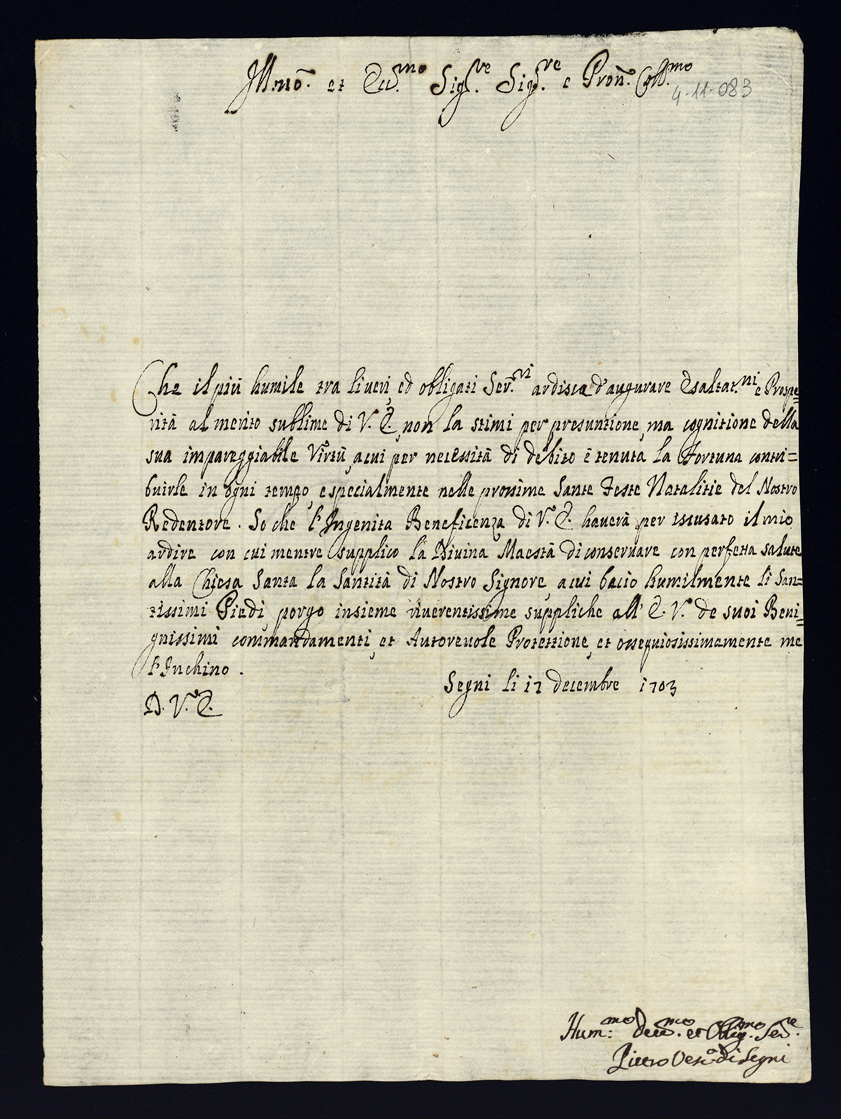 Ill.mo et Ecc.mo Sig.re Sig.re e Pron. Coll.mo
4-11-083
Che il più humile tra li veri ed obligati Ser.ri ardisca d'augurare Esaltat.ni e Prospe=
rità al merito sublime di V.E. non la stimi per presuntione, ma cognitione della
sua impareggiabile Virtù, a cui per necessità di debito è tenuta la Fortuna contri=
buirle in ogni tempo, e specialmente nelle prossime Sante Feste Natalitie del Nostro
Redentore. So che l'Ingenita Beneficenza di V.E. haverà per iscusato il mio
ardire con cui mentre supplico la Divina Maestà di conservare con perfetta salute
alla Chiesa Santa la Santità di Nostro Signore a cui bacio humilmente li San=
tissimi Piedi, porgo insieme riverentissime suppliche all'E.V. de suoi Beni=
gnissimi commandamenti, et Autorevole Protettione, et ossequiosissimamente me
l'Inchino.
Segni li 12 decembre 1703
D.V.E.
Hum:mo Dev.mo et Oblig.mo Ser.e
Pietro Vesc.o di Segni